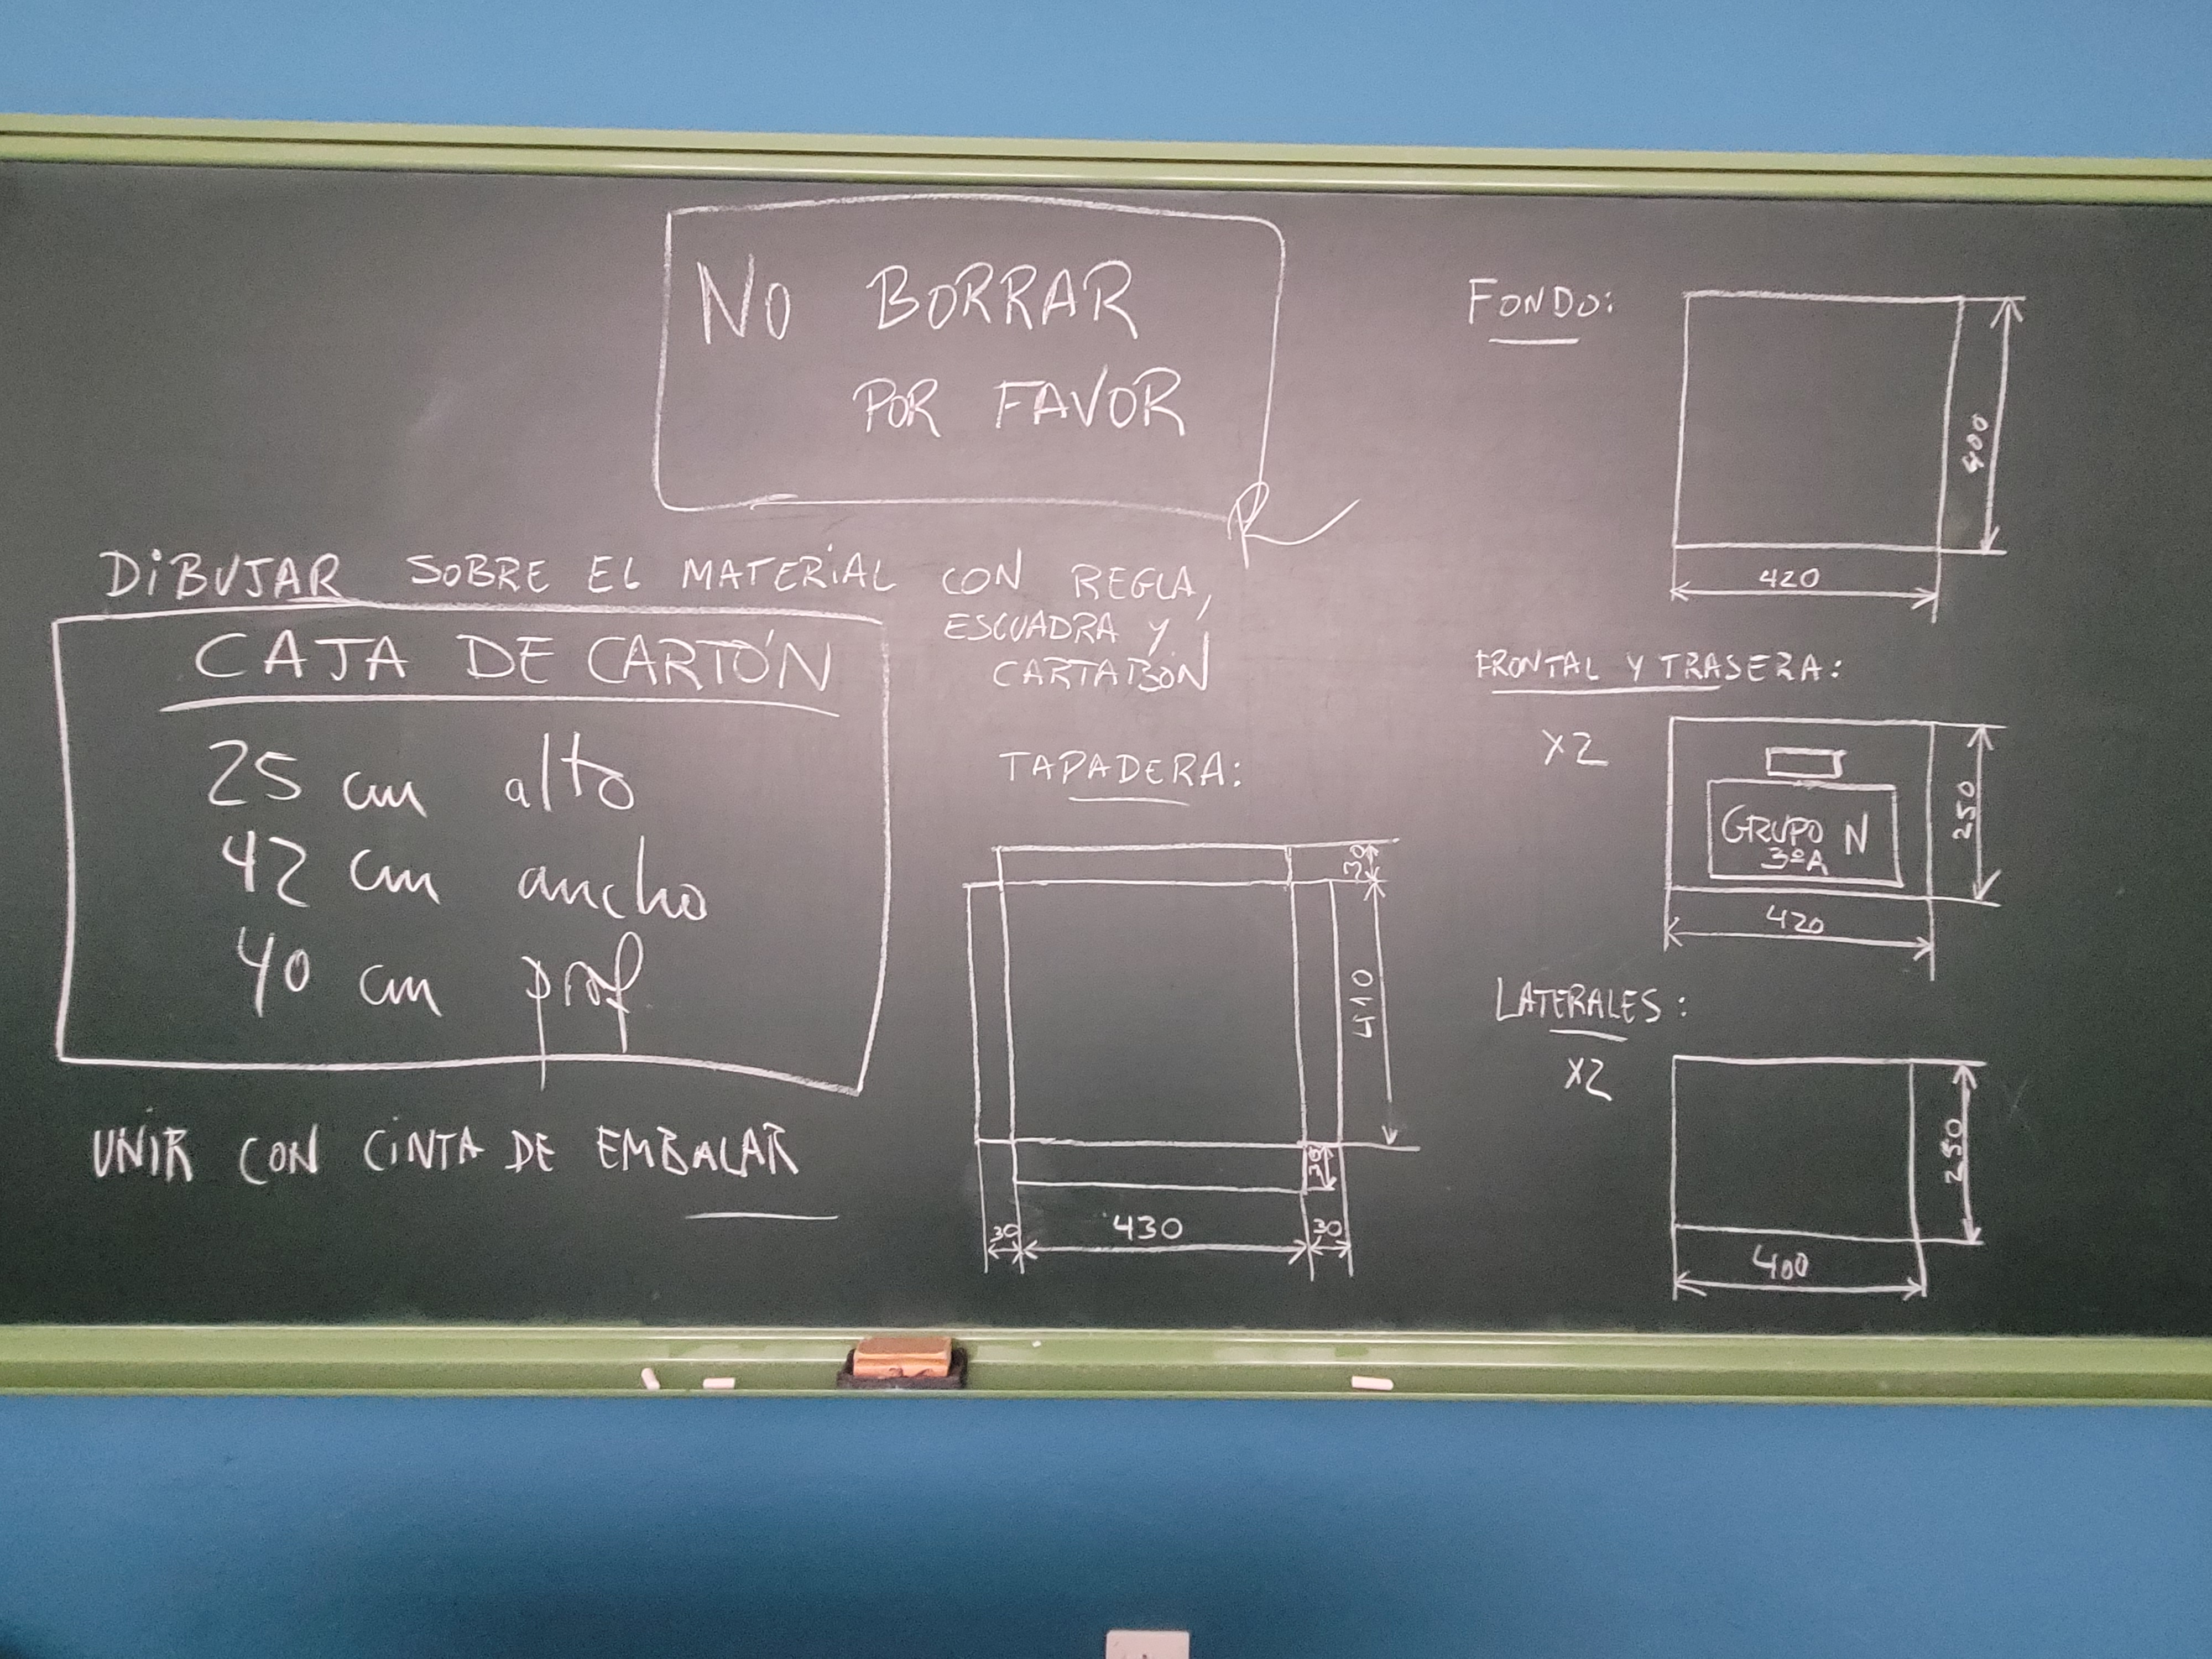 NO BORRAR
POR FAVOR
DIBUJAR SOBRE EL MATERIAL CON REGLA,
ESCUADRA Y
CARTABÓN
CAJA DE CARTÓN
25 cm alto
42 cm ancho
40 cm prof
UNIR CON CINTA DE EMBALAR
TAPADERA:
30
410
30
30
430
30
FONDO:
400
420
FRONTAL Y TRASERA:
X2
GRUPO N
3ºA
250
420
LATERALES:
X2
250
400